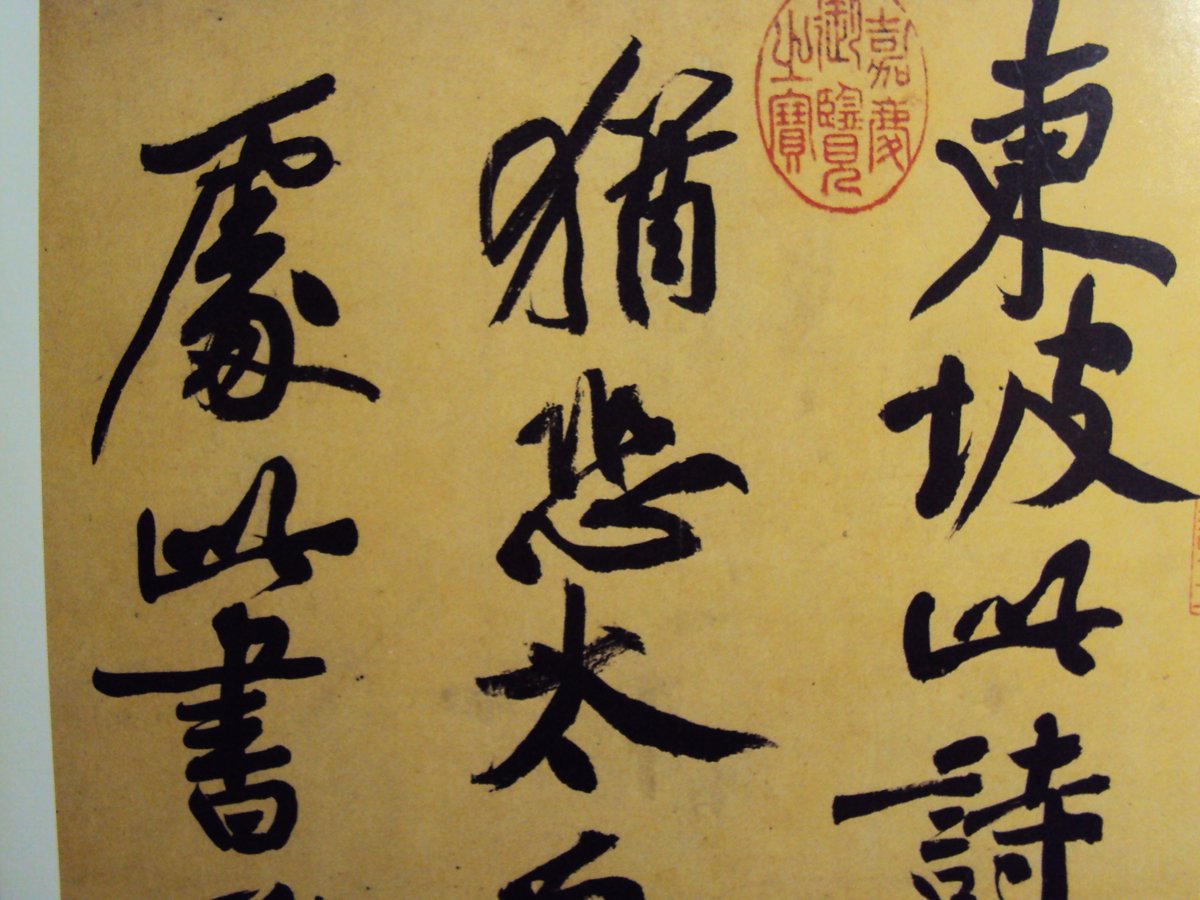 東坡此詩
嘉慶御覽之寶
猶恐太
處此書